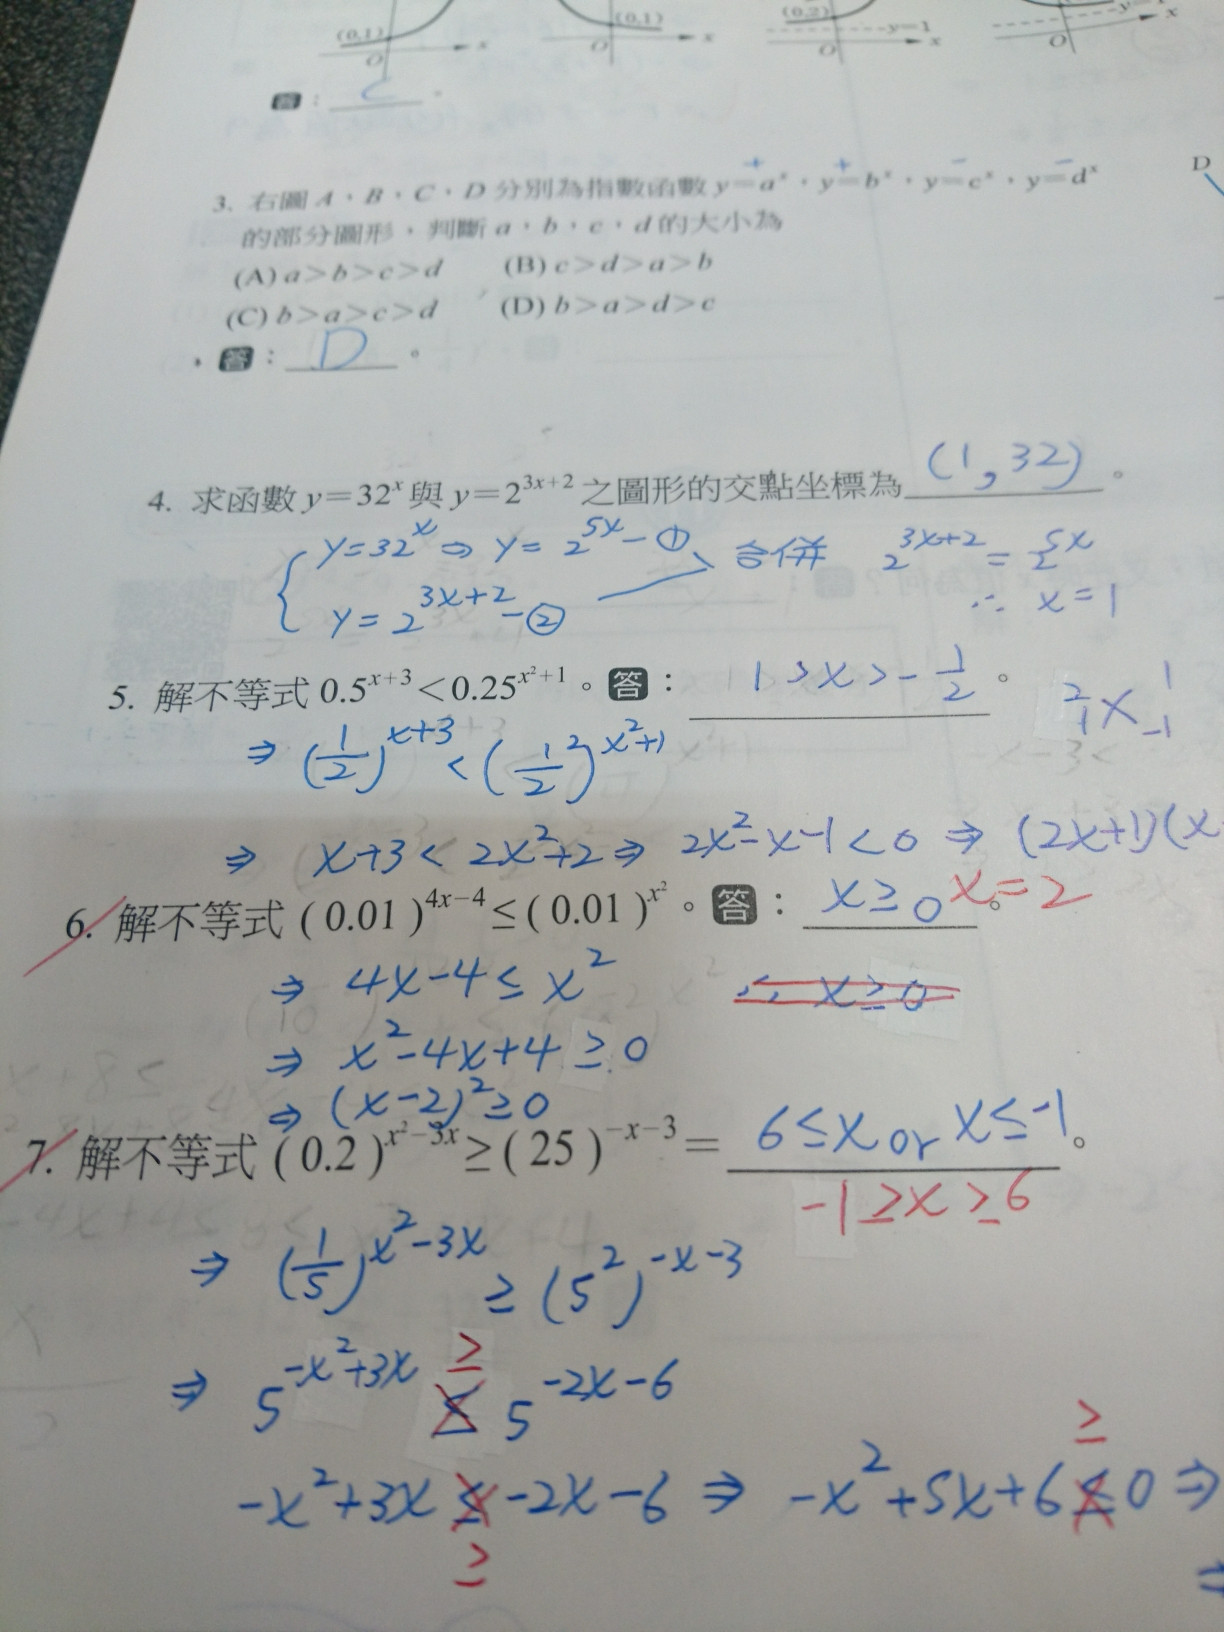 (0,1) O x (0,1) O x (0,2) y=1 O x O x
答：C。
3. 右圖 A、B、C、D 分別為指數函數 y=aˣ、y=bˣ、y=cˣ、y=dˣ
+ + − −
D
的部分圖形，判斷 a、b、c、d 的大小為
(A) a>b>c>d (B) c>d>a>b
(C) b>a>c>d (D) b>a>d>c
答：D。
4. 求函數 y=32ˣ 與 y=2³ˣ⁺² 之圖形的交點坐標為 (1,32)。
y=32ˣ ⇒ y=2⁵ˣ－① 合併 2³ˣ⁺²=2⁵ˣ
y=2³ˣ⁺²－② ∴ x=1
5. 解不等式 0.5^(x+3)<0.25^(x²+1)。答：1>x>-1/2。
2 1
1 -1
⇒ (1/2)^(x+3) < (1/2²)^(x²+1)
⇒ x+3<2x²+2 ⇒ 2x²-x-1<0 ⇒ (2x+1)(x
6. 解不等式 (0.01)^(4x-4)≤(0.01)^(x²)。答：x≥0。x=2
⇒ 4x-4≤x² ∴ x≥0
⇒ x²-4x+4≥0
⇒ (x-2)²≥0
7. 解不等式 (0.2)^(x²-3x)≥(25)^(-x-3)= 6≤x or x≤-1。
-1≥x≥6
⇒ (1/5)^(x²-3x) ≥ (5²)^(-x-3)
≥
⇒ 5^(-x²+3x) ≤ 5^(-2x-6)
≥
-x²+3x ≤ -2x-6 ⇒ -x²+5x+6 ≤ 0 ⇒
≥
⇒